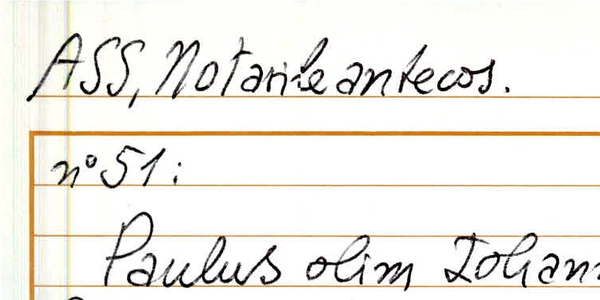 ASS, Notarile antecos.
n° 51:
Paulus olim Iohann